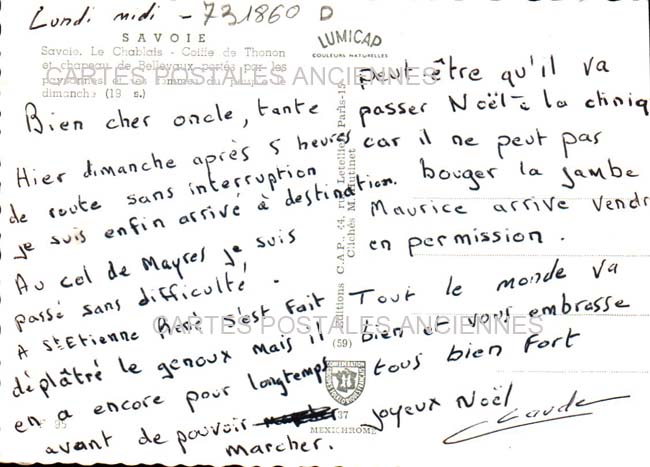 Lundi midi - 731860 D
SAVOIE
Savoie. Le Chablais - Coiffe de Thonon
et chapeau de Bellevaux portés par les
dimanche (19 s.)
CARTES POSTALES ANCIENNES
Bien cher oncle, tante
Hier dimanche après 5 heures
de route sans interruption
je suis enfin arrivé à destination.
Au col de Mayres je suis
passé sans difficulté.
A St Etienne René s'est fait
CARTES POSTALES ANCIENNES
déplâtré le genoux mais il
en a encore pour longtemps
95
avant de pouvoir
marcher.
LUMICAP
COULEURS NATURELLES
Editions C.A.P., 44, rue Letellier, Paris-15
Clichés M.
(59)
37
MEXICHROME
peut être qu'il va
passer Noël à la cliniq
car il ne peut pas
bouger la jambe
Maurice arrive Vendr
en permission.
Tout le monde va
bien et vous embrasse
tous bien fort
joyeux Noël
Claude